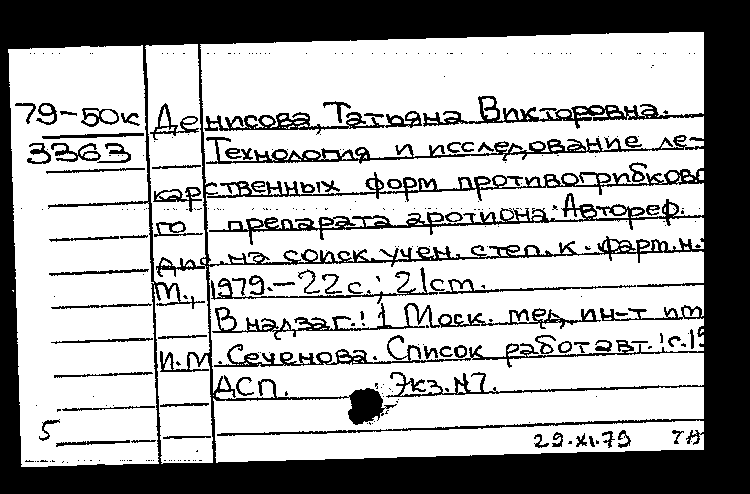 79-50к Денисова, Татьяна Викторовна.
3363 Технология и исследование ле-
карственных форм противогрибково
го препарата аротиона: Автореф.
дис. на соиск. учен. степ. к. фарм. н.:
М., 1979.-22 с.; 21 cm.
В надзаг.: 1 Моск. мед. ин-т им
И. М. Сеченова. Список работ авт.: с. 15
ДСП. Экз. N7.
5
29.XI.79